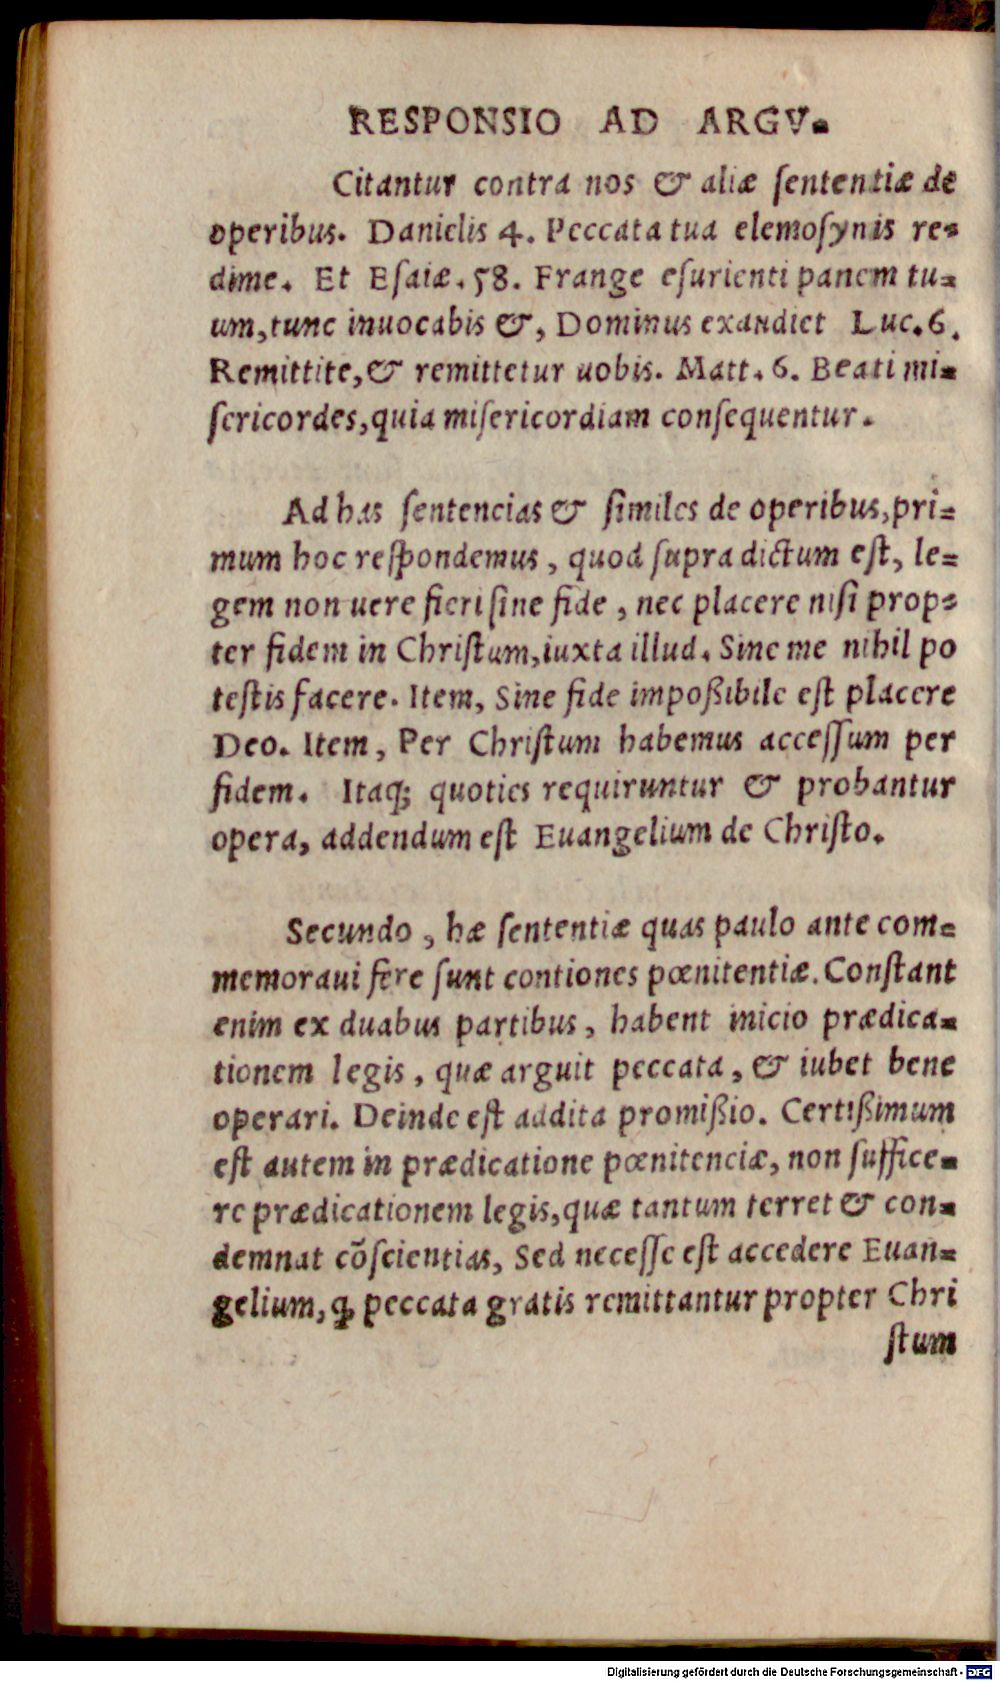 RESPONSIO AD ARGV-
Citantur contra nos & aliæ ſententiæ de
operibus. Danielis 4. Peccata tua elemoſynis re-
dime. Et Eſaiæ. 58. Frange eſurienti panem tu-
um, tunc inuocabis &, Dominus exaudiet Luc. 6.
Remittite, & remittetur uobis. Matt. 6. Beati mi-
ſericordes, quia miſericordiam conſequentur.
Ad has ſentencias & ſimiles de operibus, pri-
mum hoc reſpondemus, quod ſupra dictum eſt, le-
gem non uere fieri ſine fide, nec placere niſi prop-
ter fidem in Chriſtum, iuxta illud. Sine me nihil po
teſtis facere. Item, Sine fide impoßibile eſt placere
Deo. Item, Per Chriſtum habemus acceſſum per
fidem. Itaq; quoties requiruntur & probantur
opera, addendum eſt Euangelium de Chriſto.
Secundo, hæ ſententiæ quas paulo ante com-
memoraui fere ſunt contiones pœnitentiæ. Conſtant
enim ex duabus partibus, habent inicio prædica-
tionem legis, quæ arguit peccata, & iubet bene
operari. Deinde eſt addita promißio. Certißimum
eſt autem in prædicatione pœnitenciæ, non ſuffice-
re prædicationem legis, quæ tantum terret & con-
demnat cõſcientias, Sed neceſſe eſt accedere Euan-
gelium, ꝙ peccata gratis remittantur propter Chri
ſtum
Digitalisierung gefördert durch die Deutsche Forschungsgemeinschaft - DFG